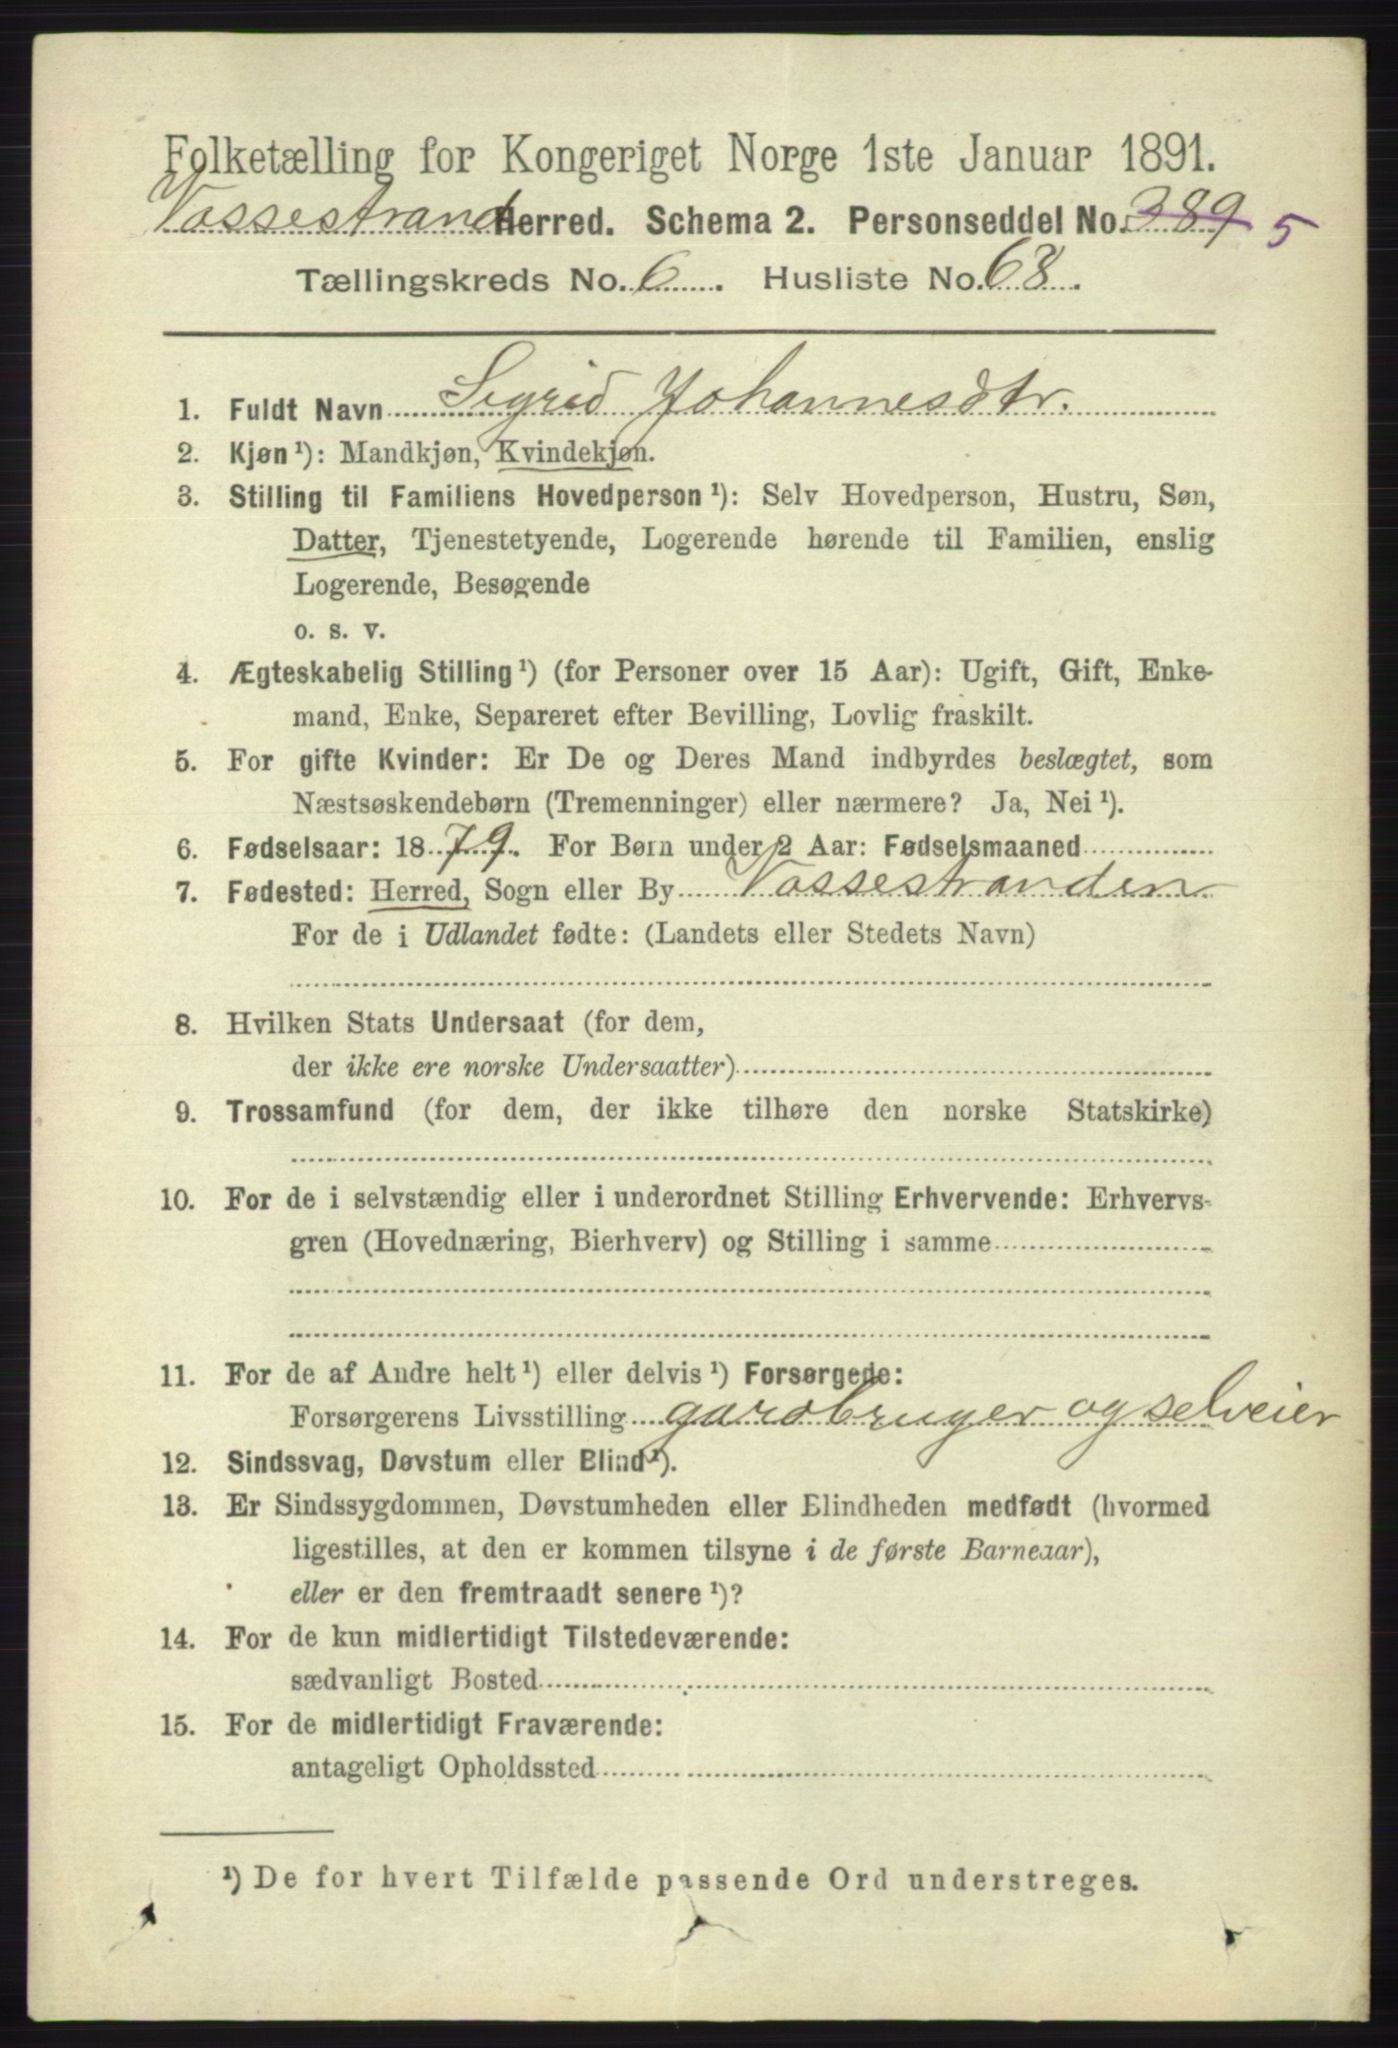 Folketælling for Kongeriget Norge 1ste Januar 1891.
Vossestrand Herred. Schema 2. Personseddel No. 389 5
Tællingskreds No. 6. Husliste No. 68.
1. Fuldt Navn Sigrid Johannesdtr.
2. Kjøn ¹): Mandkjøn, Kvindekjøn.
3. Stilling til Familiens Hovedperson ¹): Selv Hovedperson, Hustru, Søn,
Datter, Tjenestetyende, Logerende hørende til Familien, enslig
Logerende, Besøgende
o. s. v.
4. Ægteskabelig Stilling ¹) (for Personer over 15 Aar): Ugift, Gift, Enke-
mand, Enke, Separeret efter Bevilling, Lovlig fraskilt.
5. For gifte Kvinder: Er De og Deres Mand indbyrdes beslægtet, som
Næstsøskendebørn (Tremenninger) eller nærmere? Ja, Nei ¹).
6. Fødselsaar: 1879. For Børn under 2 Aar: Fødselsmaaned
7. Fødested: Herred, Sogn eller By Vossestranden
For de i Udlandet fødte: (Landets eller Stedets Navn)
8. Hvilken Stats Undersaat (for dem,
der ikke ere norske Undersaatter)
9. Trossamfund (for dem, der ikke tilhøre den norske Statskirke)
10. For de i selvstændig eller i underordnet Stilling Erhvervende: Erhvervs-
gren (Hovednæring, Bierhverv) og Stilling i samme
11. For de af Andre helt ¹) eller delvis ¹) Forsørgede:
Forsørgerens Livsstilling gardbruger og selveier
12. Sindssvag, Døvstum eller Blind ¹).
13. Er Sindssygdommen, Døvstumheden eller Blindheden medfødt (hvormed
ligestilles, at den er kommen tilsyne i de første Barneaar),
eller er den fremtraadt senere ¹)?
14. For de kun midlertidigt Tilstedeværende:
sædvanligt Bosted
15. For de midlertidigt Fraværende:
antageligt Opholdssted
¹) De for hvert Tilfælde passende Ord understreges.